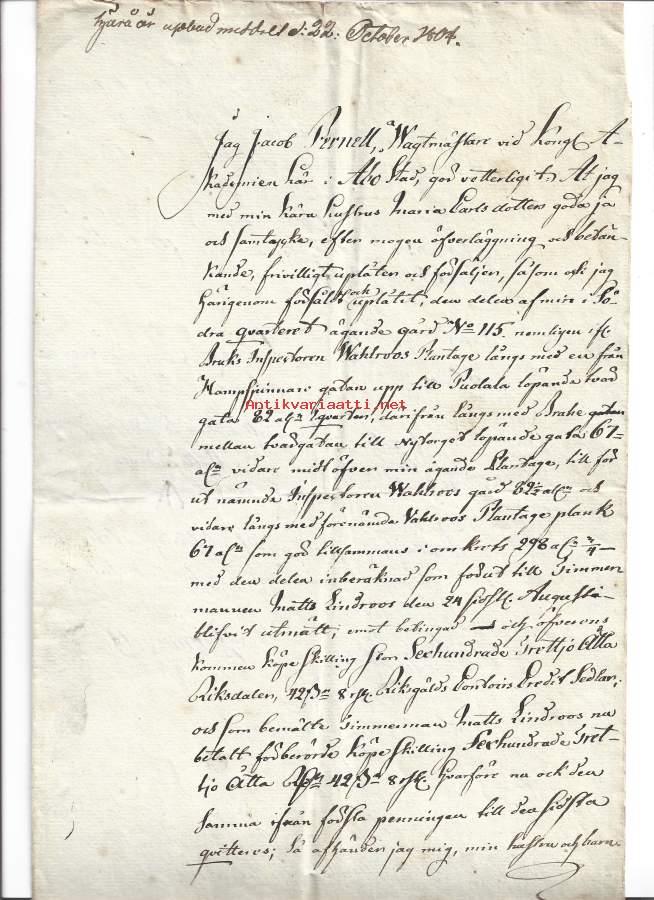 Härå är upbud meddelt d: 22: October 1804.
Jag Jacob Pernell, Wagtmästare vid Kongl. A-
kademien här i Åbo Stad, gör vetterligit: At jag
med min kära hustrus Maria Carlsdotters goda ja
och samtycke, efter mogen öfverläggning och betän-
kande, frivilligt uplåter och försäljer, så som ock jag
härigenom försåldt ock uplåtit, den delen af min i Sö-
dra quarteret ägande gård No 115 nemligen ifr.
Bruks Inspectoren Wahlroos Plantage längs med en från
Hampspinnare gatan upp till Puolala löpande tvär
gata 82 aln 1 quarter, därifrån längs med Brahe gatan
Antikvariaatti.net
mellan tvärgatan till Nytorget löpande gata 67-
aln vidare midt öfver min ägande Plantage, till för
ut nämnde Inspectoren Wahlroos gård 82 1/2 aln och
vidare längs med förenämde Wahlroos Plantage plank
67 aln som gör tillsammans i omkrets 298 aln 3/4 —
med den delen inberäknad som förut till Timmer
mannen Matts Lindroos den 24 sidstl. Augusti
blifvit utmätt; emot betingad — och öfverens
kommen köpe skilling stor Sexhundrade Trettjo Åtta
Riksdaler, 42 ß 8 rst. Riksgälds Contoirs Credit Sedlar;
och som bemälte Timmerman Matts Lindroos nu
betalt förberörde köpe skilling Sexhundrade Tret-
tjo Åtta Rdr 42 ß 8 rst. hvarföre nu ock den
samma ifrån första penningen till den sidsta
qvitteres; Så afhänder jag mig, min hustru och barn